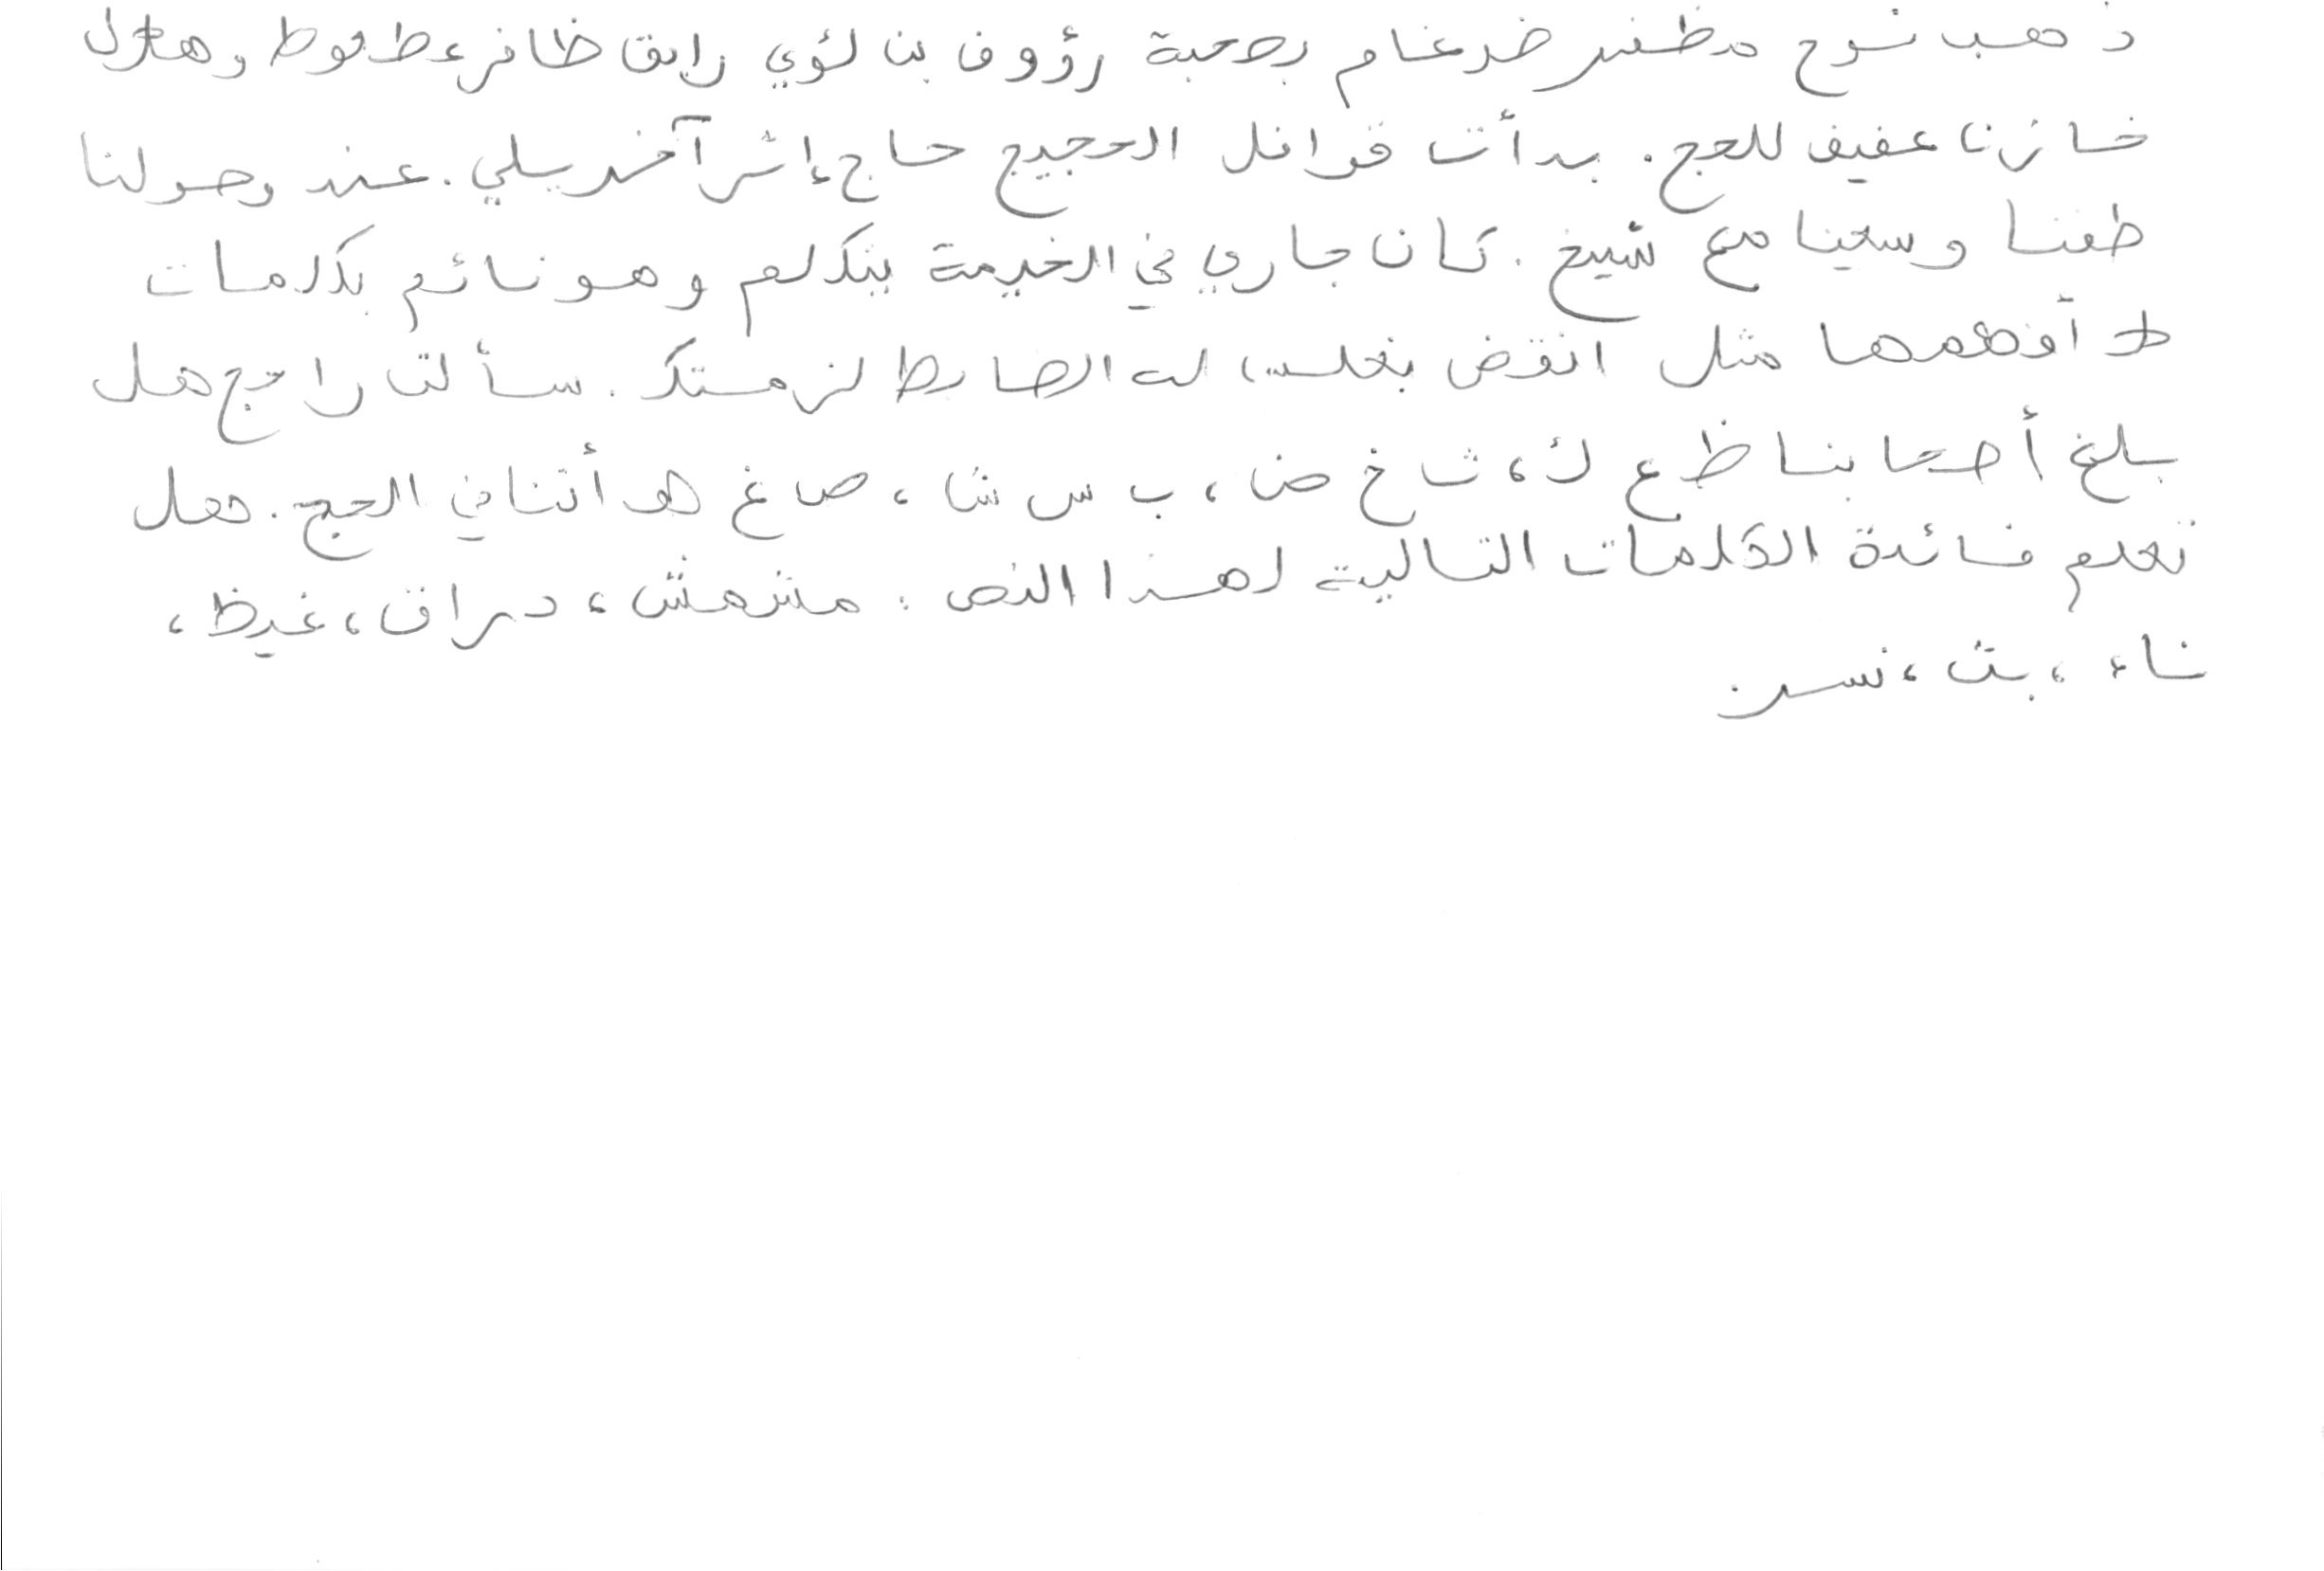 ذهب نوح مظفر ضرغام بصحبة رؤوف بن لؤي رايق ظافر عطعوط وهلال
خازنا عفيف للحج. بدأت قوافل الحجيج حاج إثر آخر يلي. عند وصولنا
طفنا وسعينا مع شيخ. كان جاري في الخيمة يتكلم وهو نائم بكلمات
لا أفهمها مثل انقض بغلس، لت الضابط لزمستك. سألت راجح هل
بلغ أصحابنا ظ ع ك، ث خ ض، ب س ش، ص غ هـ أثناء الحج. هل
تعلم فائدة الكلمات التالية لهذا النص: مشمش، دراق، غيظ،
ناء، بث، نسر.